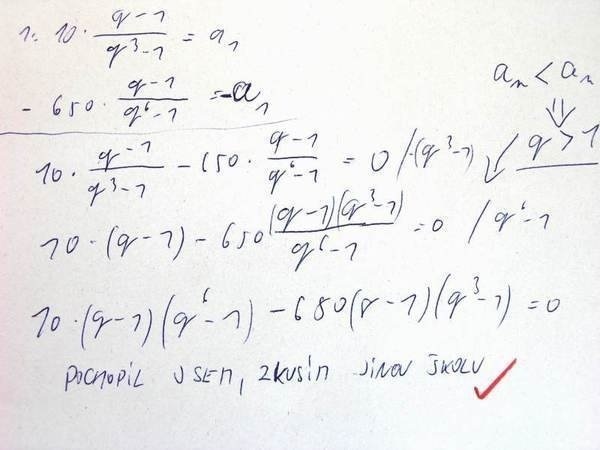 1. 10 · (q-1)/(q³-1) = a₁
- 650 · (q-1)/(q⁶-1) = -a₁
aₙ < aₙ
⇓
10 · (q-1)/(q³-1) - 650 · (q-1)/(q⁶-1) = 0 / ·(q³-1)
q > 1
10 · (q-1) - 650 (q-1)(q³-1)/(q⁶-1) = 0 / q⁶-1
10 · (q-1)(q⁶-1) - 650(q-1)(q³-1) = 0
POCHOPIL JSEM, ZKUSÍM JINOU ŠKOLU